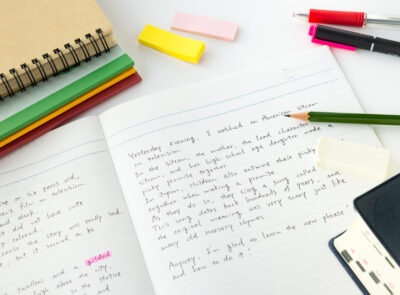 five or six years old,
film on television
dark.
did not have cute
colored
the story was really sad.
but it seemed to be
swallow and a gilded
high above the city.
the statue
Yesterday evening, I watched an American sitcom
on television.
In the sitcom, the mother, the lead character
and her high-school age daughter made a
pinky promise together.
In Japan, children also entwine their pinky
together when making a promise.
As they do so, they sing a song called
This song dates back hundreds of years, and
the original meaning was very scary just like
many old nursery rhymes.
Anyway, I'm glad to learn the new phrase
and how to do it.